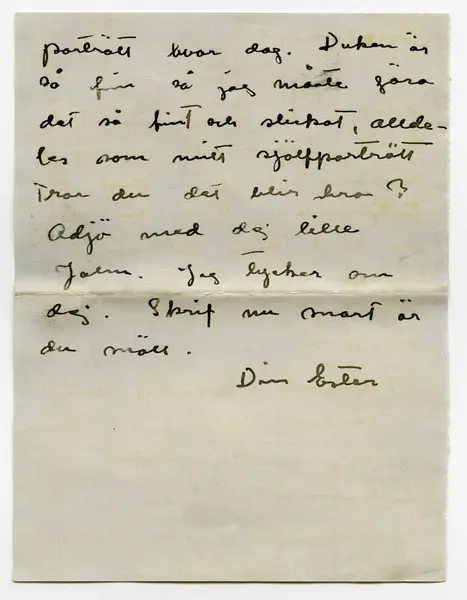 porträtt hvar dag. Duken är
så fin så jag måste göra
det så fint och slickat, allde-
les som mitt självporträtt
Tror du det blir bra?
Adjö med dej lille
Jalm. Jag tycker om
dej. Skrif nu snart är
du snäll.
Din Ester